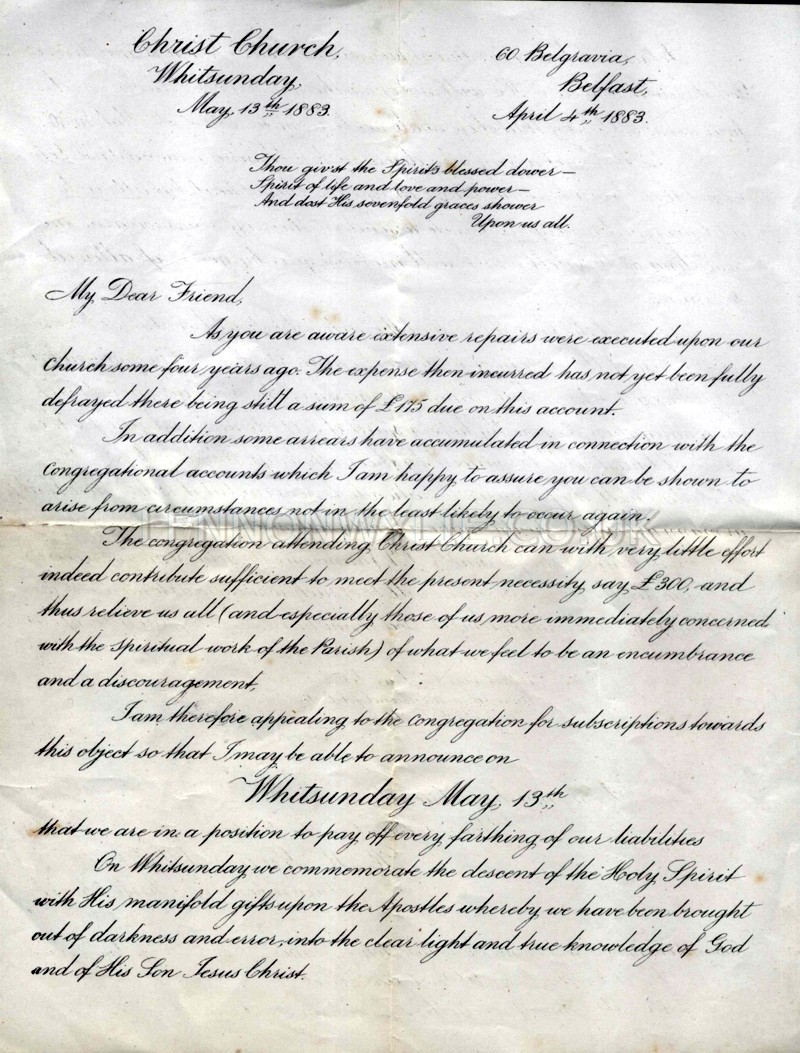 Christ Church,
Whitsunday,
May, 13th 1883.
60 Belgravia,
Belfast,
April 4th 1883.
Thou giv'st the Spirit's blessed dower—
Spirit of life and love and power—
And dost His sevenfold graces shower
Upon us all.
My Dear Friend,
As you are aware extensive repairs were executed upon our
Church some four years ago. The expense then incurred has not yet been fully
defrayed there being still a sum of £175 due on this account.
In addition some arrears have accumulated in connection with the
Congregational accounts which I am happy to assure you can be shown to
arise from circumstances not in the least likely to occur again.
The congregation attending Christ Church can with very little effort
indeed contribute sufficient to meet the present necessity, say £300, and
thus relieve us all (and especially those of us more immediately concerned
with the spiritual work of the Parish) of what we feel to be an encumbrance
and a discouragement,
I am therefore appealing to the Congregation for subscriptions towards
this object so that I may be able to announce on
Whitsunday May, 13th
that we are in a position to pay off every farthing of our liabilities
On Whitsunday we commemorate the descent of the Holy Spirit
with His manifold gifts upon the Apostles whereby we have been brought
out of darkness and error, into the clear light and true knowledge of God
and of His Son Jesus Christ.